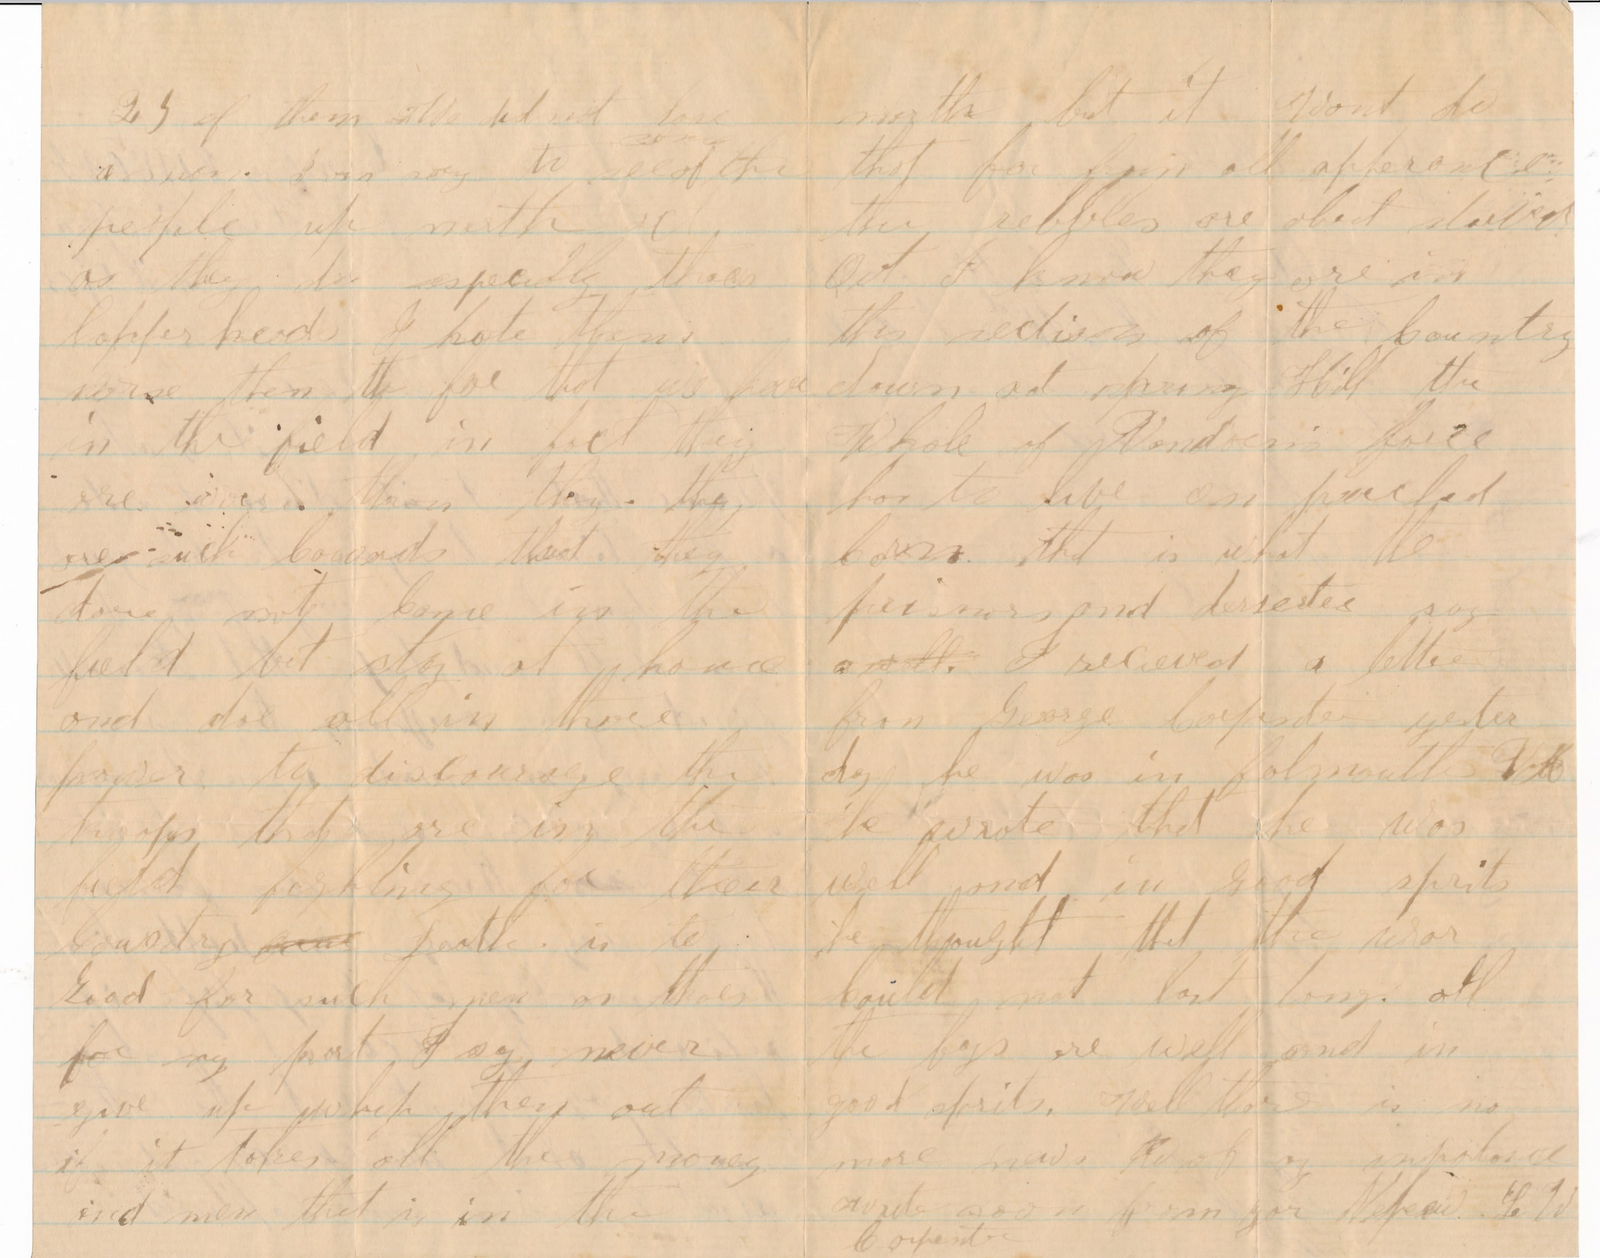 25 of them We did not lose
a man. I am sorry to see some of the
people up north act
as they do especially thoes
Copper heads I hate them
worse then the foe that we have
in the field in fact they
are worse than they. they
are such cowards that they
dare not come in the
field but stay at home
and doe all in there
power to discourage the
troops that are in the
field fighting for their
country death is to
Good for such men as thoes
for my part I say never
give up whip them out
if it takes all the money
and men that is in the
north but it wont do
that for from all apperences
the rebbles are about starved
Out I know they are in
this section of the Country
down at spring Hill the
Whole of Vandorns force
has to live on parched
Corn. that is what the
prisnors and desertee say
I recieved a letter
from George Carpenter yester
day he was in falmouth Va
he wrote that he was
well and in good sprits
he thought that the war
could not last long. all
the boys are well and in
good sprits. Well there is no
more news of importance
write soon from your Nephew. G W
Carpenter